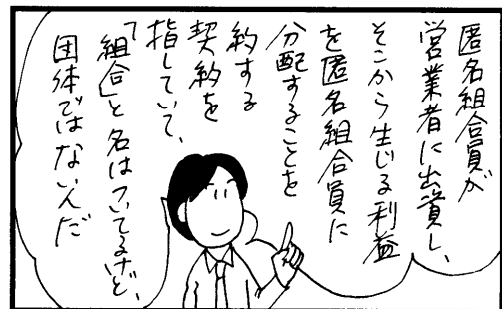 匿名組合員が
営業者に出資し、
そこから生じる利益
を匿名組合員に
分配することを
約する
契約を
指していて、
「組合」と名はついてるけど、
団体ではないんだ